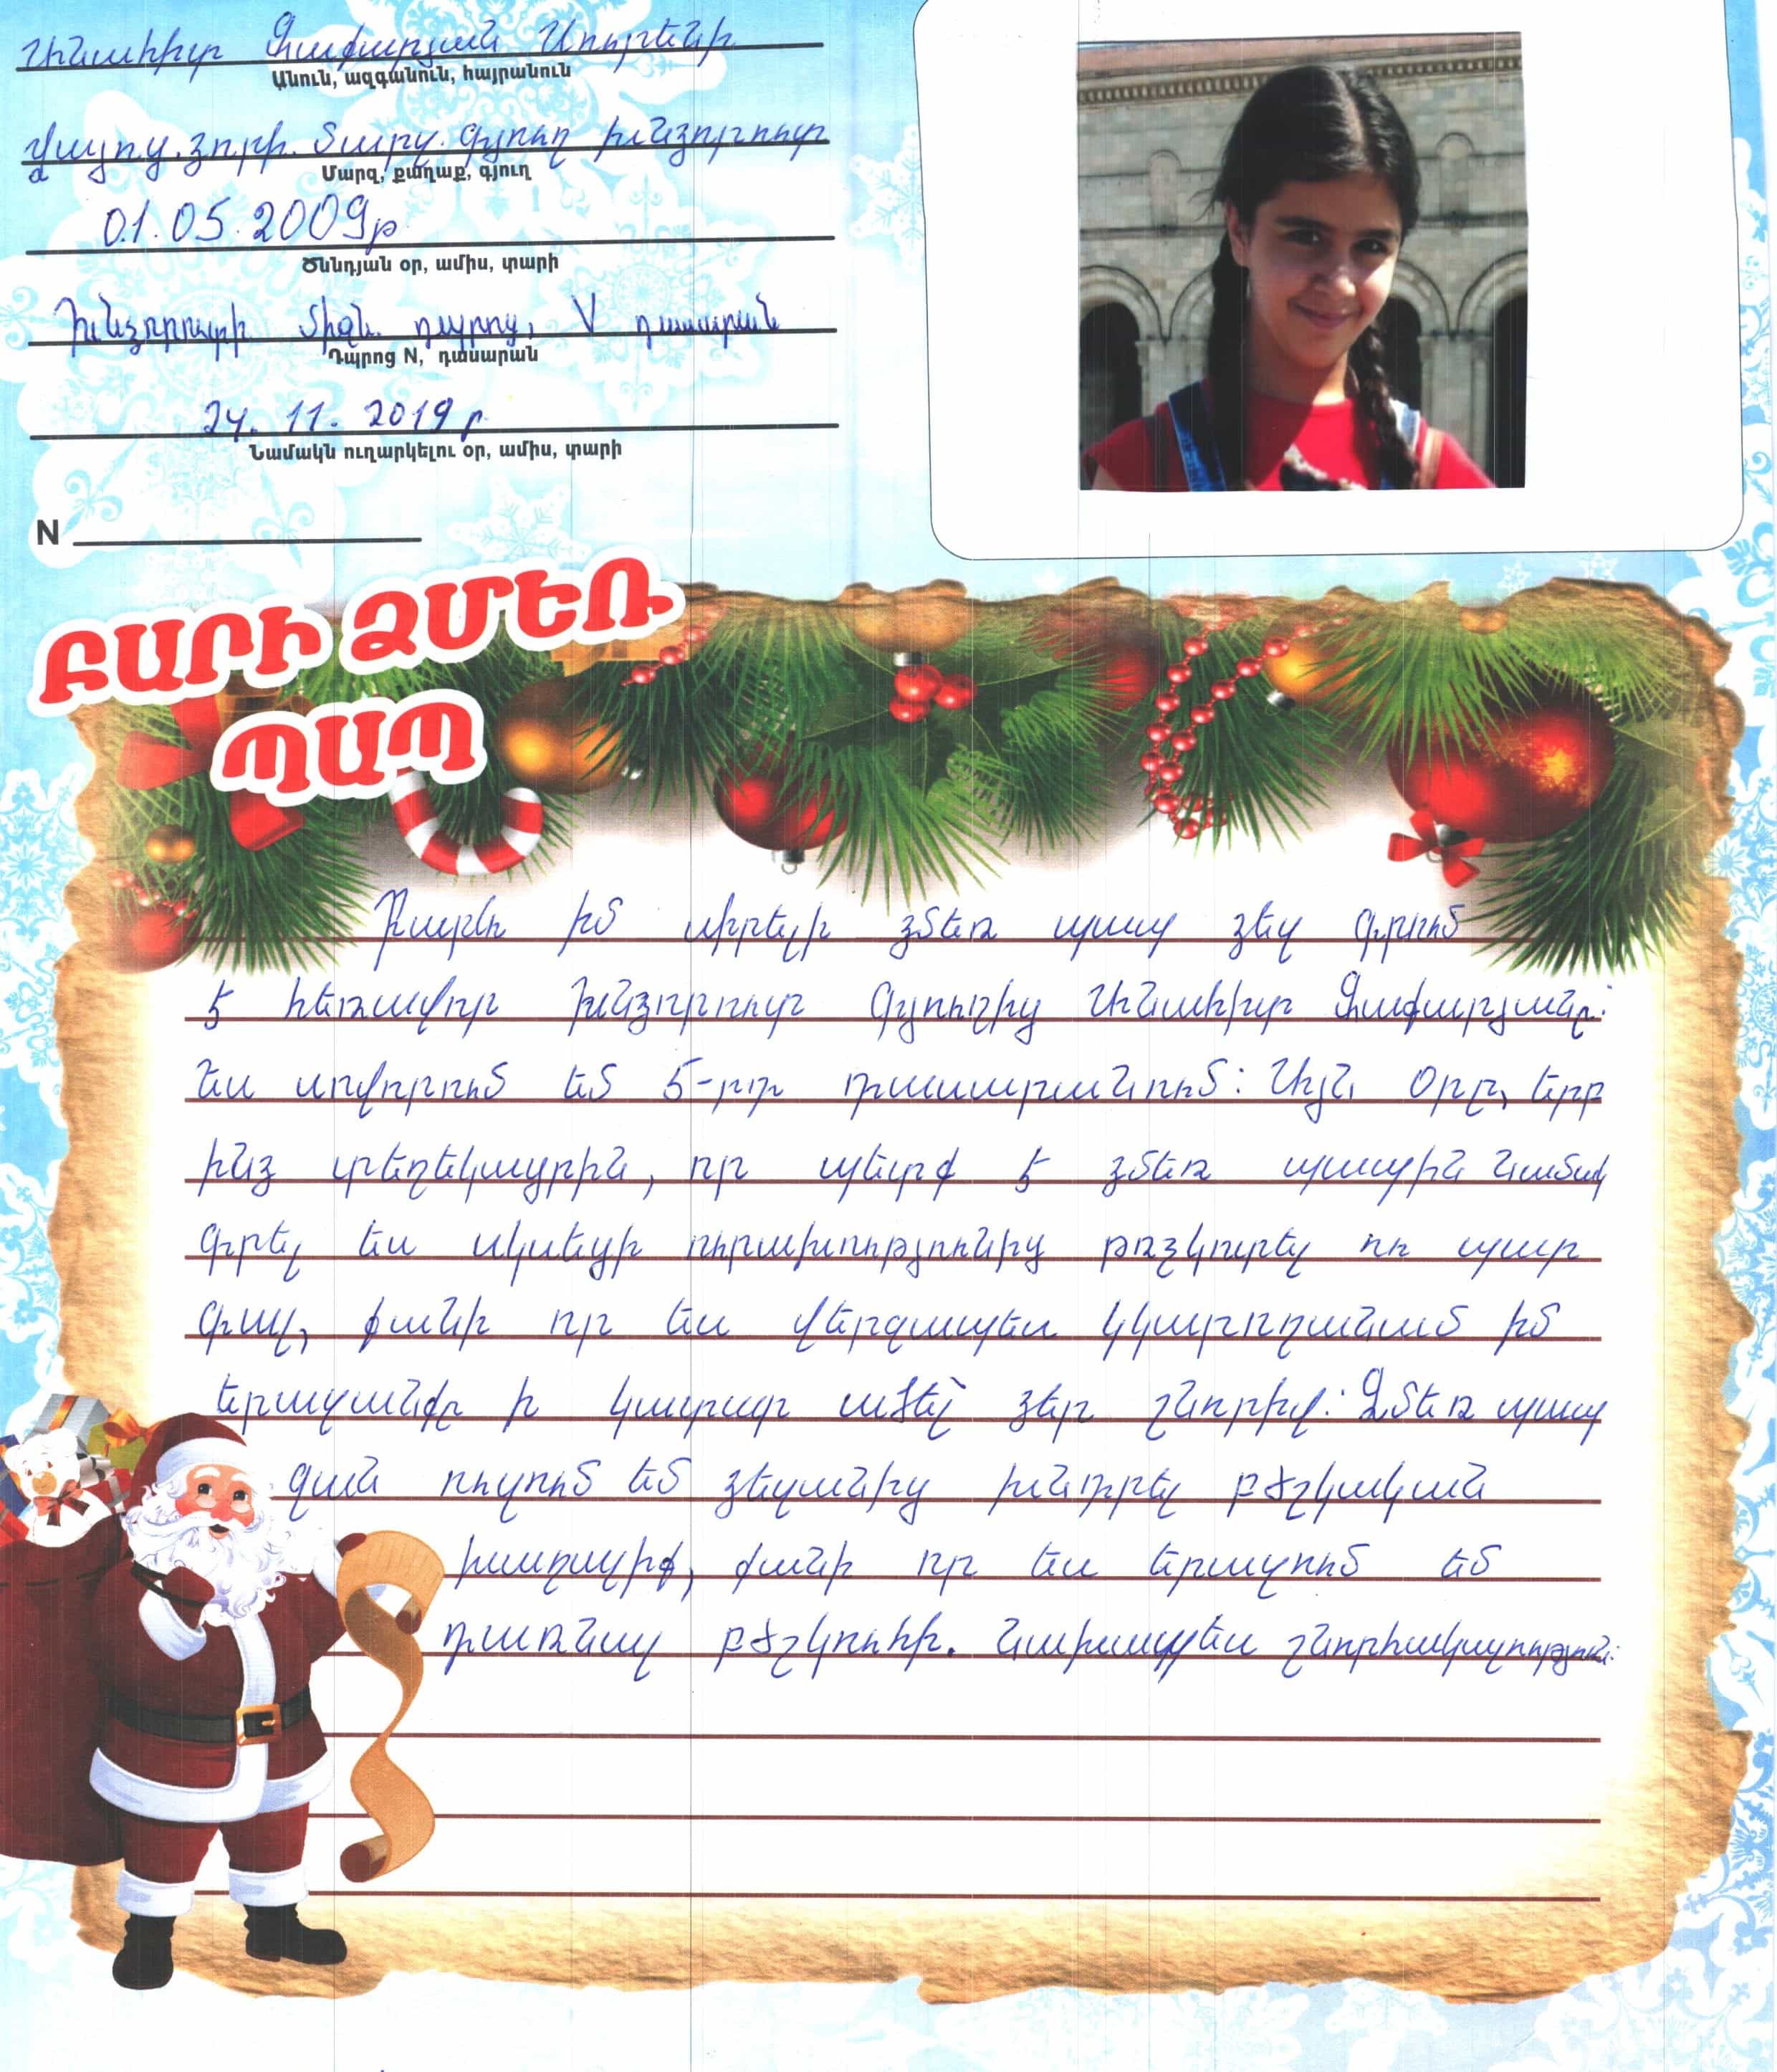 Անահիտ Զաքարյան Սուրենի
Անուն, ազգանուն, հայրանուն
Վայոց. ձորի. մարզ. Գյուղ խնձորուտ
Մարզ, քաղաք, գյուղ
01.05.2009թ
Ծննդյան օր, ամիս, տարի
Խնձորուտի միջն. դպրոց, V դասարան
Դպրոց N, դասարան
24. 11. 2019թ.
Նամակն ուղարկելու օր, ամիս, տարի
N
ԲԱՐԻ ՁՄԵՌ
ՊԱՊ
Բարև իմ սիրելի ձմեռ պապ ձեզ գրում
է հեռավոր խնձորուտ Գյուղից Անահիտ Զաքարյանը:
Ես սովորում եմ 5-րդ դասարանում: Այն օրը, երբ
ինձ տեղեկացրին, որ պետք է ձմեռ պապին նամակ
գրել ես սկսեցի ուրախությունից թռչկոտել ու պար
գալ, քանի որ ես վերջապես կկարողանամ իմ
երազանքը ի կատար ածել ձեր շնորհիվ: Ձմեռ պապ
ջան ուզում եմ ձեզանից խնդրել բժշկական
խաղալիք, քանի որ ես երազում եմ
դառնալ բժշկուհի. Նախապես շնորհակալություն: